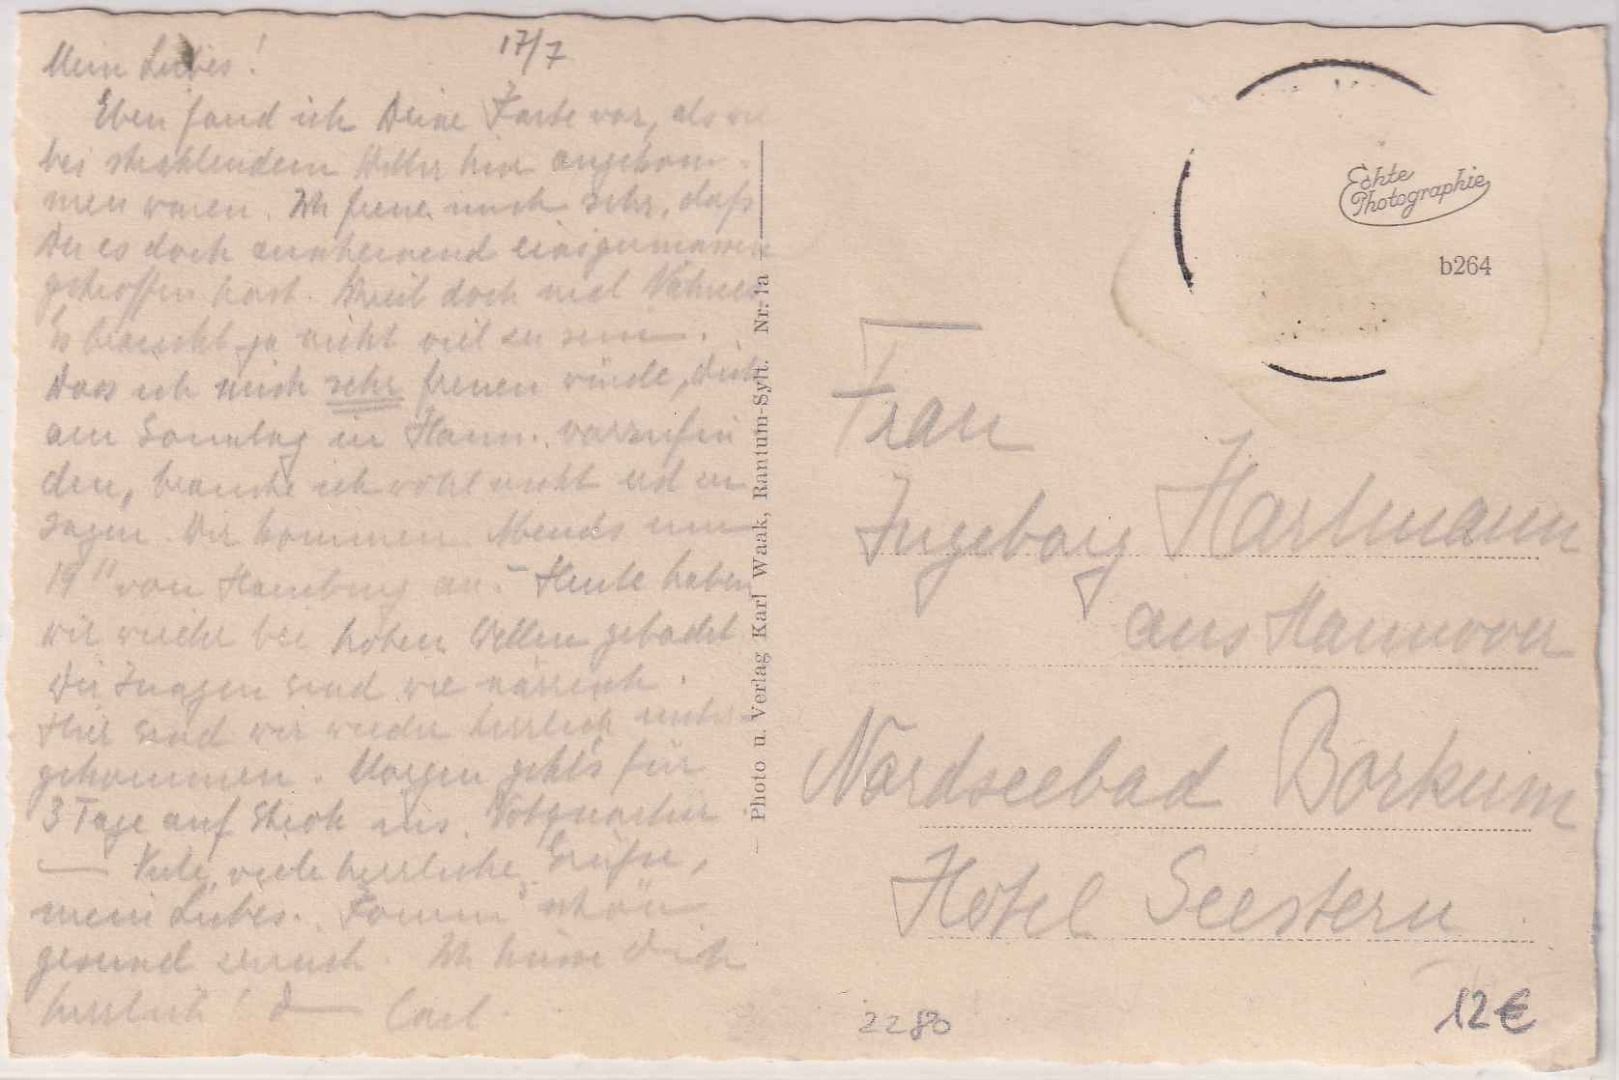 17/7
Mein Liebes!
Eben fand ich Deine Karte vor, als wir
bei strahlendem Wetter hier angekom-
men waren. Ich freue mich sehr, daß
Du es doch anscheinend einigermassen
getroffen hast.
Es braucht ja nicht viel zu sein.
Dass ich mich sehr freuen würde, Dich
am Sonntag in Hann. vorzufin
den, brauche ich wohl nicht erst zu
sagen. Wir kommen Abends um
19 11 von Hamburg an. - Heute haben
wir wieder bei hohen Wellen gebadet
Die Jungen sind wie närrisch.
Hier sind wir wieder herrlich unter-
gekommen. Morgen geht's für
3 Tage auf Stroh ins Notquartier.
— Viele, viele herzliche Grüße,
mein Liebes. Komm schön
gesund zurück. Ich küsse Dich
herzlich! D— Carl.
Photo u. Verlag Karl Waak, Rantum-Sylt. Nr. 1a
Echte
Photographie
b264
Frau
Ingeborg Hartmann
aus Hannover
Nordseebad Borkum
Hotel Seestern
2280
12€